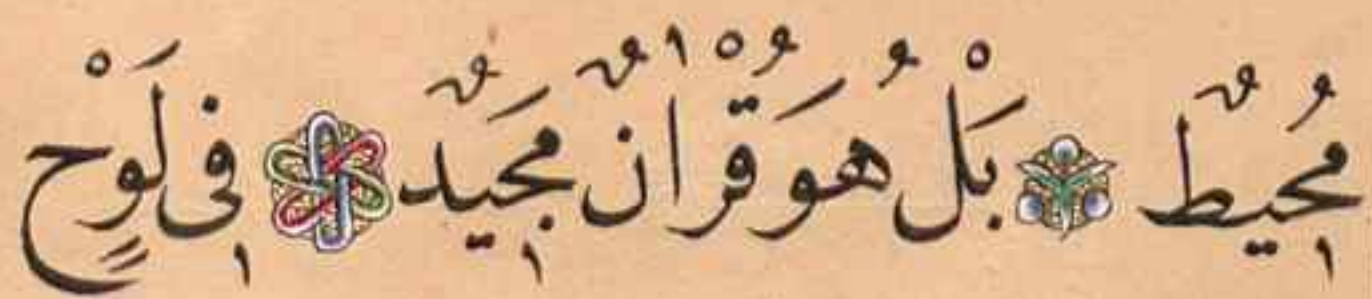 مُحٖيطٌ بَلْ هُوَ قُرْاٰنٌ مَجٖيدٌ فٖى لَوْحٍ